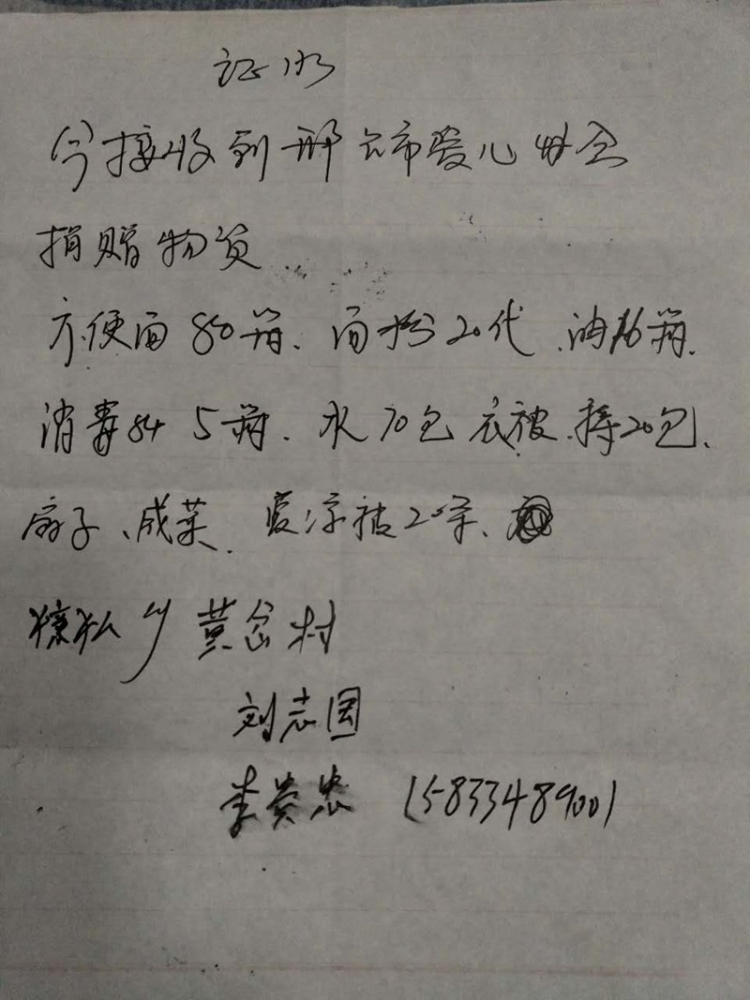 证明
今接收到邢台市爱心协会
捐赠物资
方便面850箱、面粉20代、油16箱、
消毒84 5箱、水70包 衣被 20包、
扇子、咸菜、夏凉被20条、
乡黄岔村
刘志国
李贵忠 15833489001